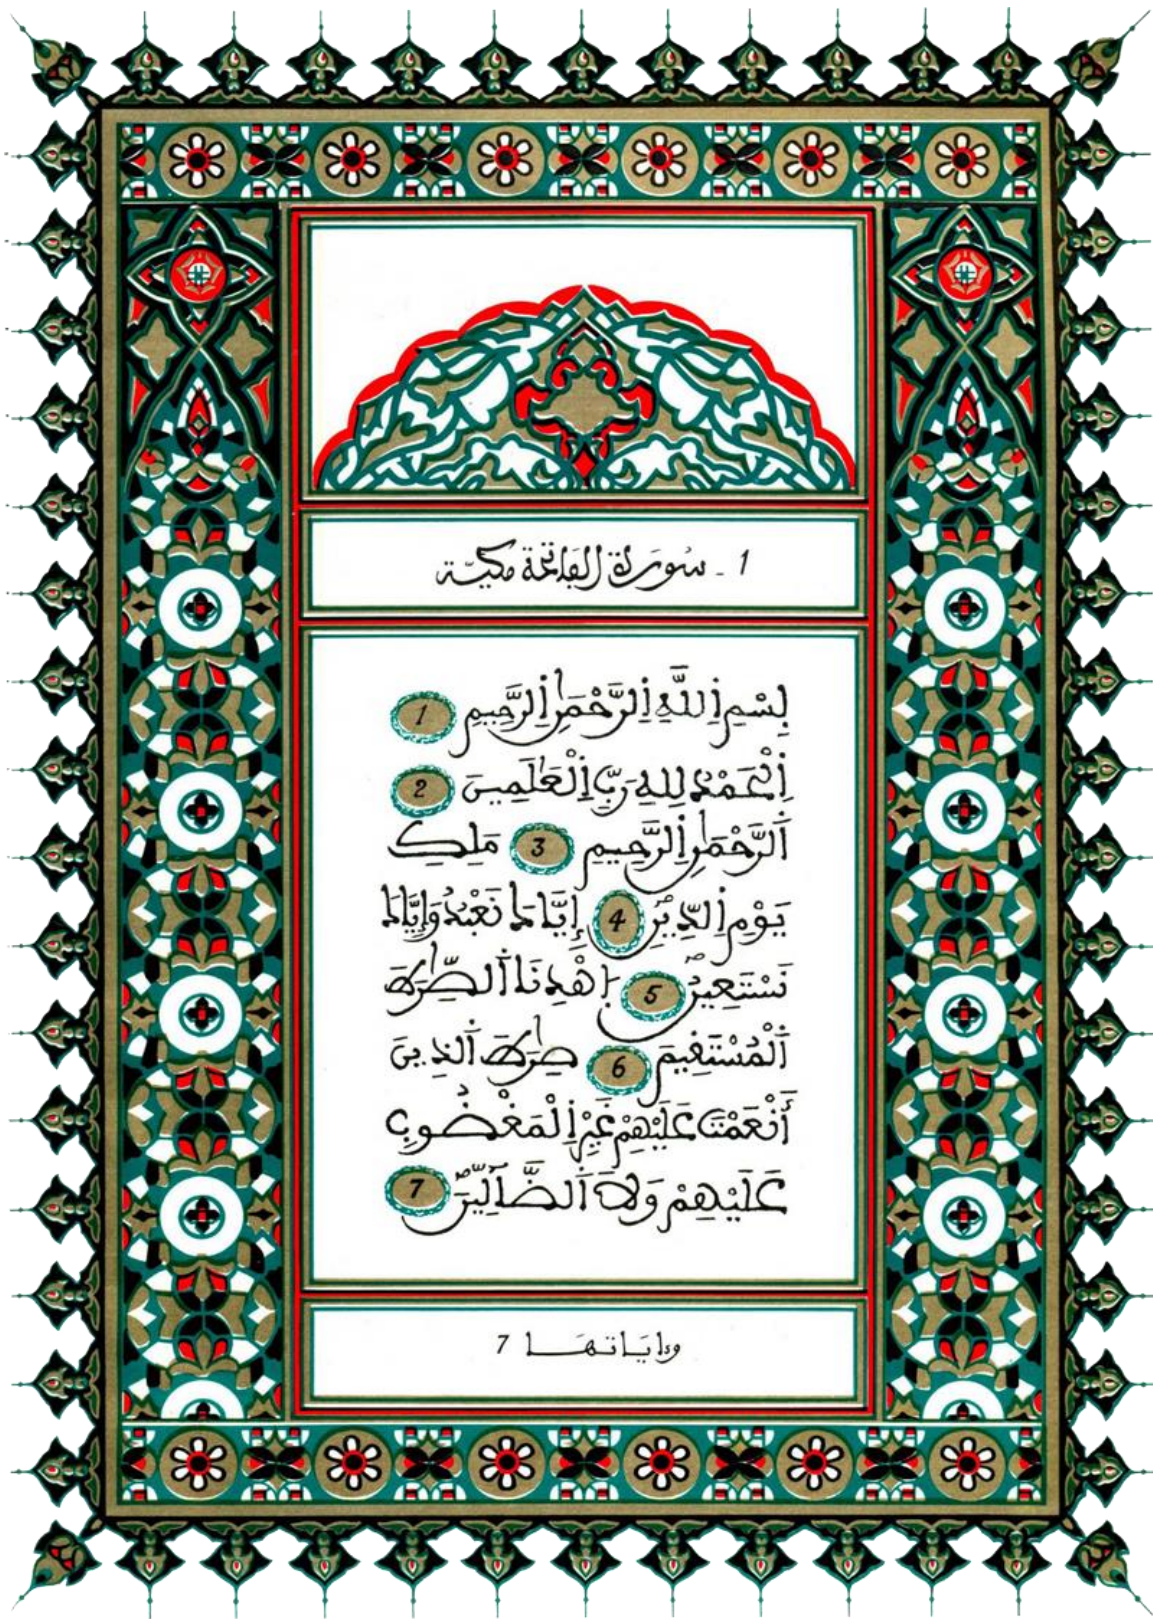 1 - سُورَة الفَاتحَة مكيّة
بِسْمِ اِ۬للَّهِ اِ۬لرَّحْمَٰنِ اِ۬لرَّحِيمِ 1
اِ۬لْحَمْدُ لِلهِ رَبِّ اِ۬لْعَٰلَمِينَ 2
اَ۬لرَّحْمَٰنِ اِ۬لرَّحِيمِ 3 مَلِكِ
يَوْمِ اِ۬لدِّينِۖ 4 إِيَّاكَ نَعْبُدُ وَإِيَّاكَ
نَسْتَعِينُۖ 5 اِ۪هْدِنَا اَ۬لصِّرَٰطَ
اَ۬لْمُسْتَقِيمَ 6 صِرَٰطَ اَ۬لذِينَ
أَنْعَمْتَ عَلَيْهِمْ غَيْرِ اِ۬لْمَغْضُوبِ
عَلَيْهِمْ وَلَا اَ۬لضَّآلِّينَۖ 7
وءايَاتهَا 7